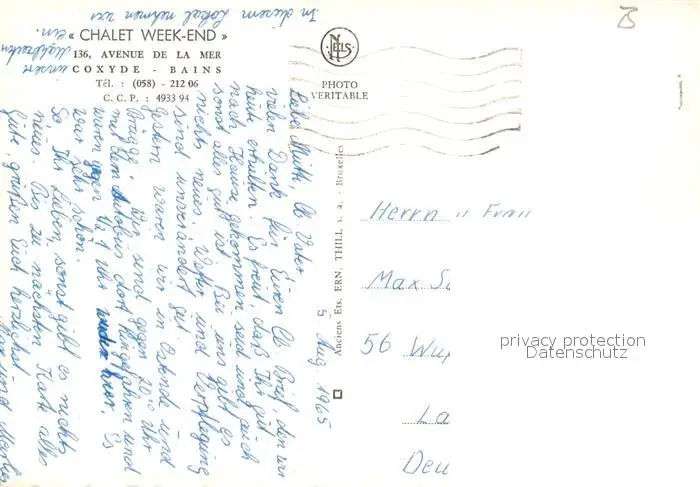 In diesem Lokal nehmen wir
unsere Mahlzeiten
ein.
« CHALET WEEK-END »
136, AVENUE DE LA MER
COXYDE - BAINS
Tél. : (058) - 212 06
C. C. P. : 4933 94
NELS
PHOTO
VERITABLE
Anciens Ets. ERN. THILL s. a. - Bruxelles
5 Aug. 1965
Liebe Mutti, lb Vater,
vielen Dank für Euren lb Brief, den wir
heute erhielten. Es freut daß Ihr gut
nach Hause gekommen seid und auch
sonst alles gut ist. Bei uns gibt es
nichts neues, Wetter und Verpflegung
sind unverändert gut.
Gestern waren wir in Ostende und
Brügge. Wir sind gegen 10 Uhr
mit dem Autobus dort hingefahren und
waren gegen 7 Uhr wieder hier. Es
war sehr schön.
So, Ihr Lieben, sonst gibt es nichts
neues. Bis zu nächsten Karte alles
Gute, grüßen Euch herzlichst
und
Herrn u Frau
Max
56
La
privacy protection
Datenschutz